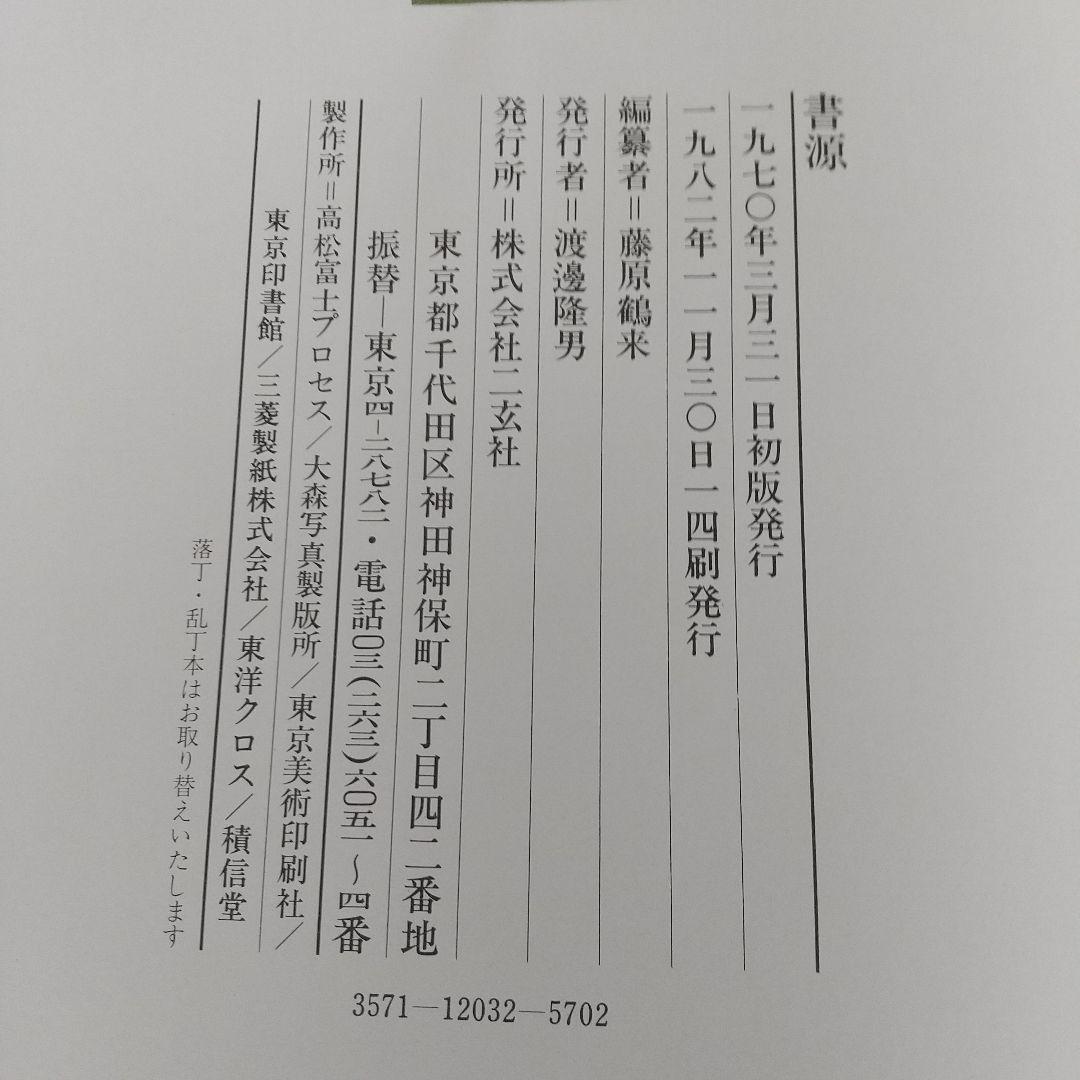 書源
一九七〇年三月三一日初版発行
一九八二年一一月三〇日一四刷発行
編纂者＝藤原鶴来
発行者＝渡邊隆男
発行所＝株式会社二玄社
東京都千代田区神田神保町二丁目四二番地
振替—東京四-二八七八二・電話〇三(二六三)六〇五一～四番
製作所＝高松富士プロセス/大森写真製版所/東京美術印刷社/
東京印書館/三菱製紙株式会社/東洋クロス/積信堂
落丁・乱丁本はお取り替えいたします
3571—12032—5702